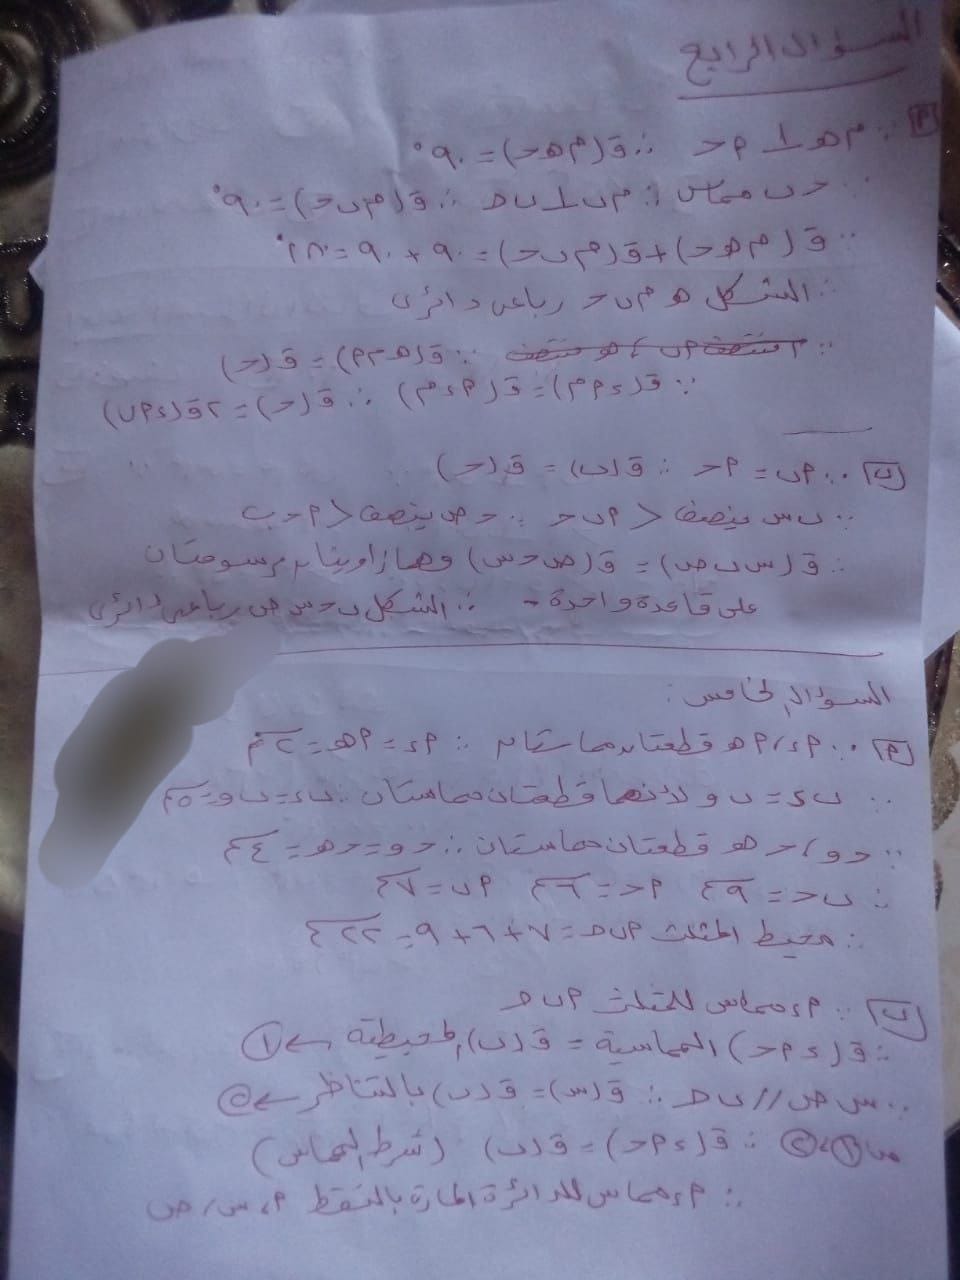 السؤال الرابع
[أ] ∵ م هـ ⊥ أ حـ ∴ ق (م هـ حـ) = ٩٠°
∵ حـ ب مماس ∴ م ب ⊥ ب حـ ∴ ق (م ب حـ) = ٩٠°
∵ ق (م هـ حـ) + ق (م ب حـ) = ٩٠ + ٩٠ = ١٨٠°
∴ الشكل هـ م ب حـ رباعى دائرى
∴ ق (هـ م أ) = ق (حـ)
∵ ق (ء أ م) = ق (أ ء م) ∴ ق (حـ) = ٢ ق (ء أ ب)
[ب] ∵ أ ب = أ حـ ∴ ق (ب) = ق (حـ)
∵ ب س ينصف > أ ب حـ ∵ حـ ص ينصف > أ حـ ب
∴ ق (س ب ص) = ق (ص حـ س) وهما زاويتان مرسومتان
على قاعدة واحدة - ∴ الشكل ب حـ س ص رباعى دائرى
السؤال الخامس :
[أ] ∵ أ ء ، أ هـ قطعتان مماستان ∴ أ ء = أ هـ = ٢ سم
∵ ب ء = ب و لأنهما قطعتان مماستان ∴ ب ء = ب و = ٥ سم
∵ حـ و ، حـ هـ قطعتان مماستان ∴ حـ و = حـ هـ = ٤ سم
∴ ب حـ = ٩ سم أ حـ = ٦ سم أ ب = ٧ سم
∴ محيط المثلث أ ب حـ = ٧ + ٦ + ٩ = ٢٢ سم
[ب] ∵ أ ء مماس للمثلث أ ب حـ
∴ ق (ء أ حـ) المماسية = ق (ب) المحيطية ← ①
∵ س ص // ب حـ ∴ ق (س) = ق (ب) بالتناظر ← ②
من ① ، ② ∴ ق (ء أ حـ) = ق (ب) (شرط التماس)
∴ أ ء مماس للدائرة المارة بالنقط أ ، س ، ص